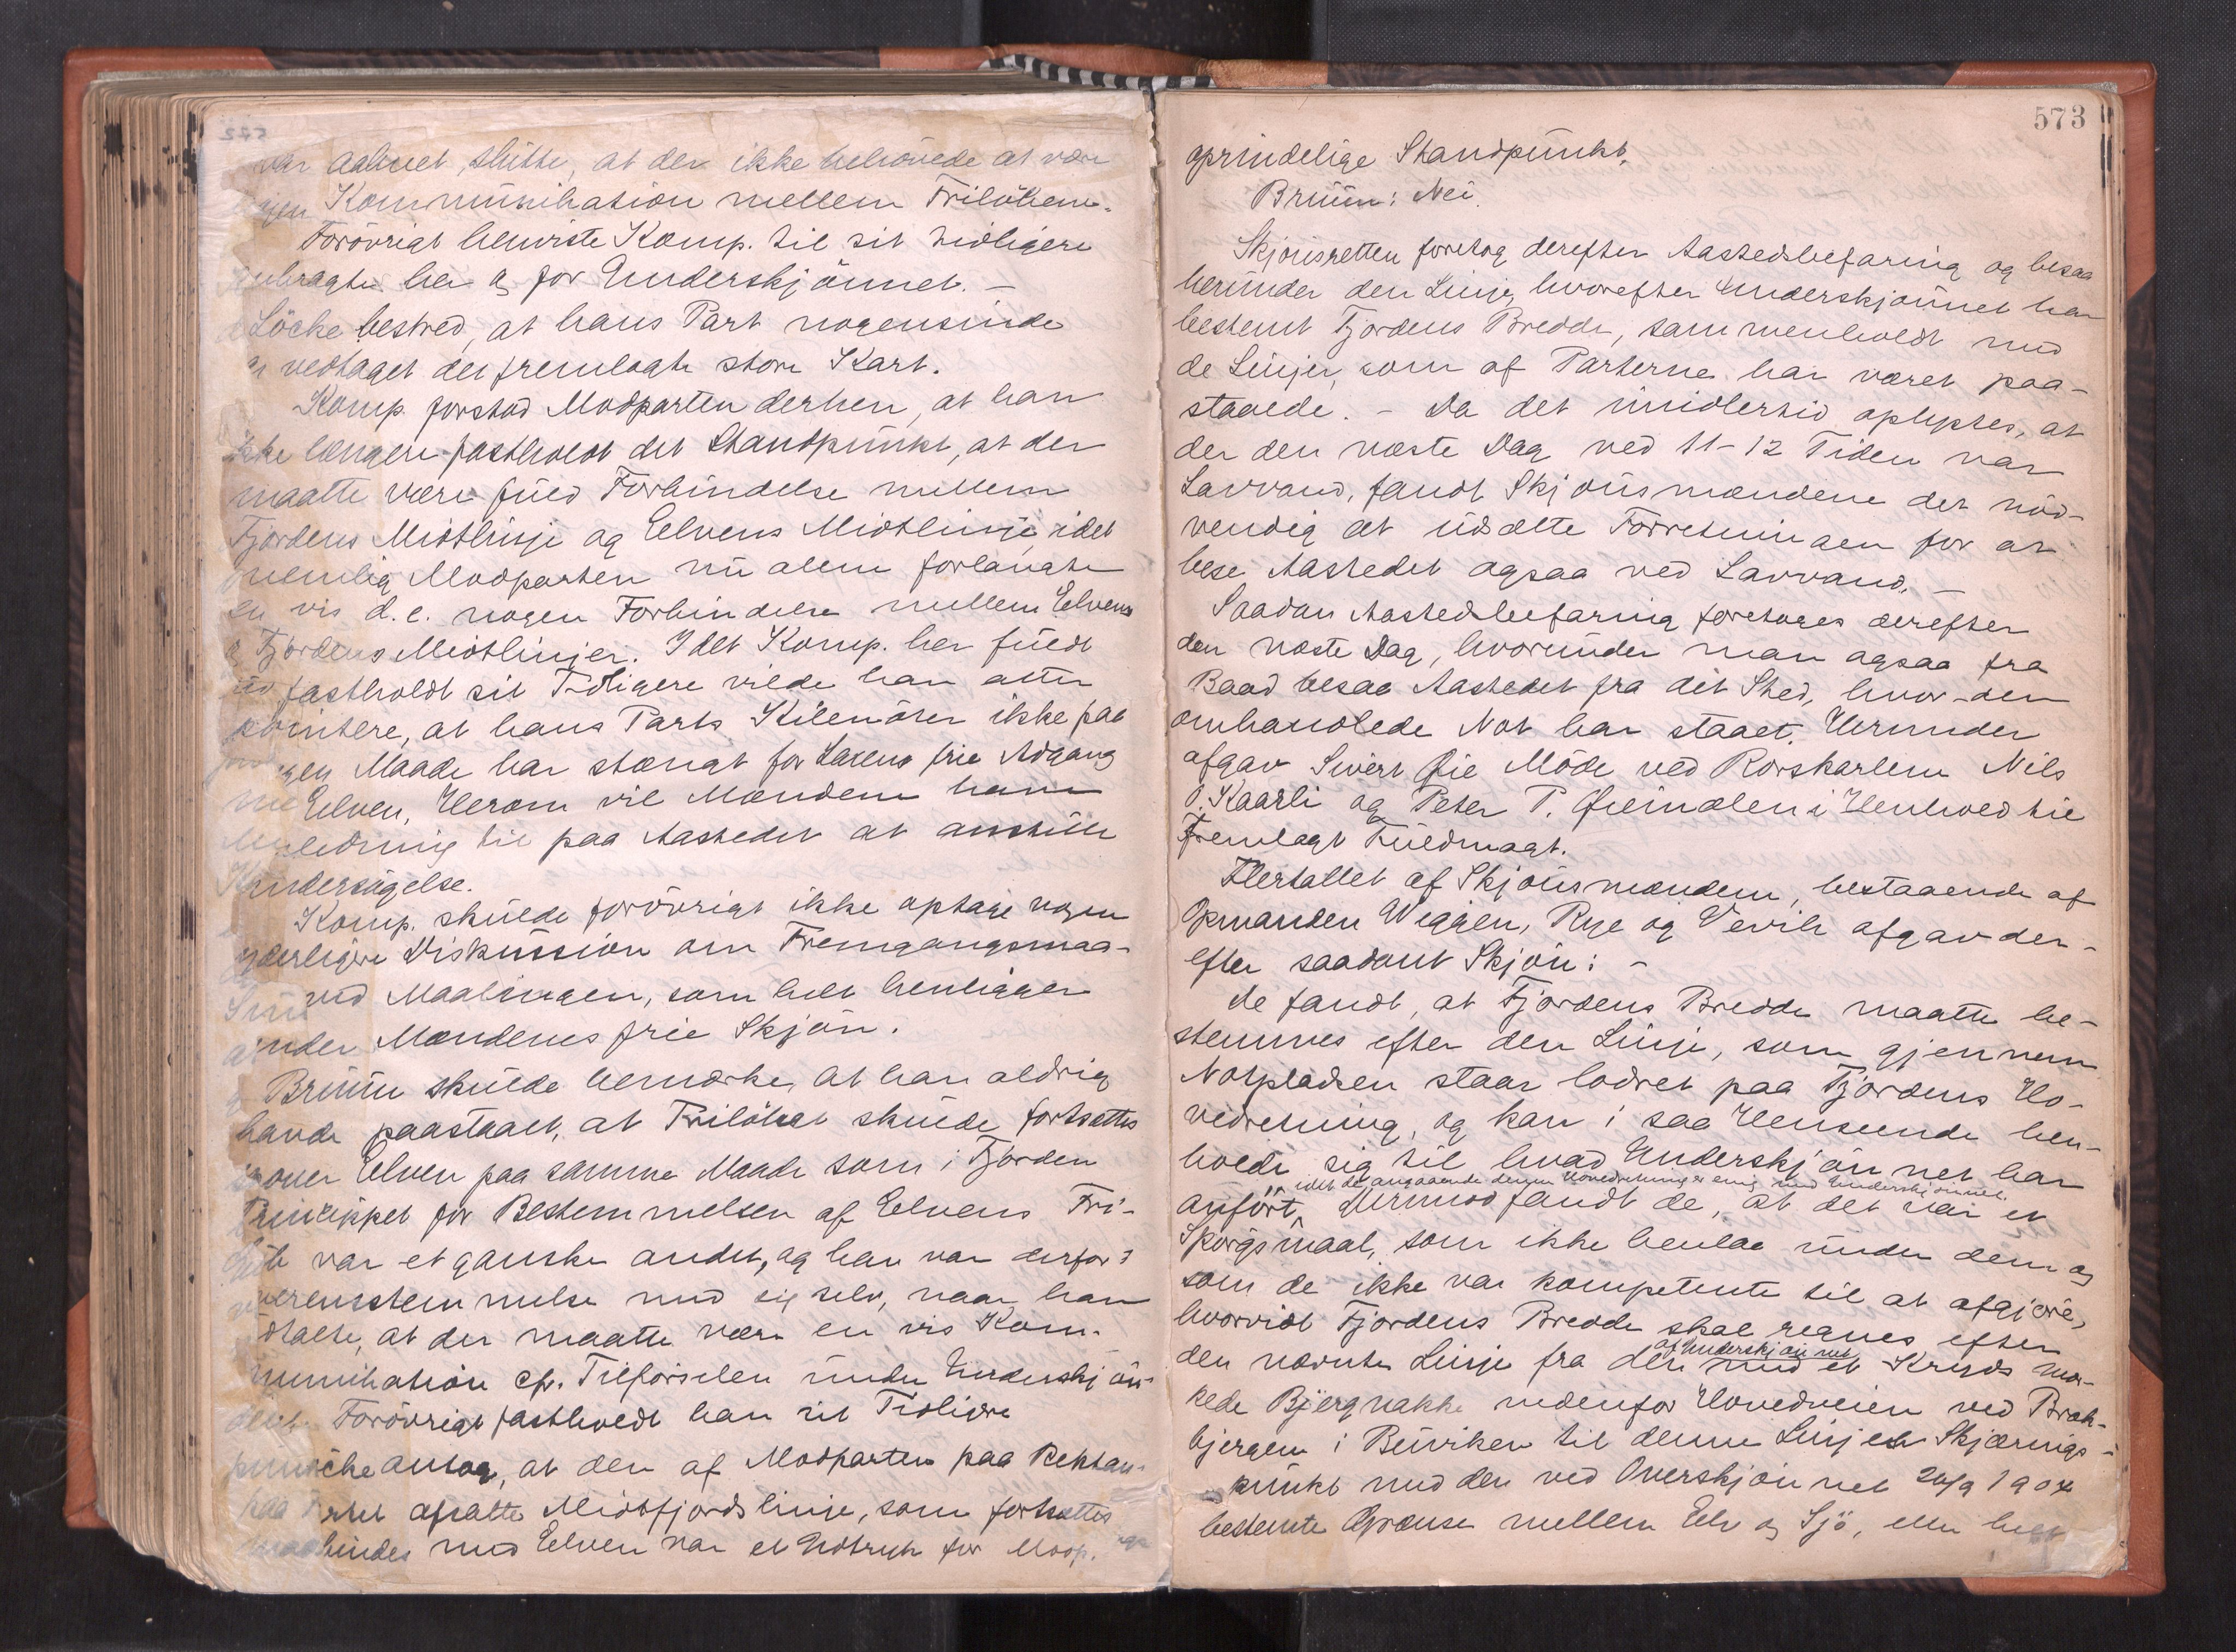 572
var aabnet, slutte, at der ikke behövede at være
Kommunikation mellem Frilöbene.
Forövrigt henviste Komp. til sit tidligere
anbragte her og for Underskjönnet. –
Löcke bestred, at hans Part nogensinde
vedtaget det fremlagte store Kart.
Komp. forstod Modparten derhen, at han
ikke længere fastholdt det Standpunkt, at der
maatte være fuld Forbindelse mellem
Fjordens Midtlinje og Elvens Midtlinje, idet
nemlig Modparten nu alene forlangte
en vis d.e. nogen Forbindelse mellem Elvens
og Fjordens Midtlinjer. Idet Komp. her fuldt
ud fastholdt sit Tidligere vilde han atter
pointere, at hans Parts Kilenöter ikke paa
nogen Maade har stængt for Laxens frie Adgang
Elven, Herom vil Mændene have
Anledning til paa Aastedet at anstille
Undersögelse.
Komp. skulde forövrigt ikke optage nogen
yderligere Diskussion om Fremgangsmaa-
ved Maalingen, som helt henligger
under Mændenes frie Skjön.
Bruun skulde bemærke, at han aldrig
havde paastaaet, at Frilöbet skulde fortsættes
over Elven paa samme Maade som i Fjorden
Princippet for Bestemmelsen af Elvens Fri-
var et ganske andet, og han var derfor i
overensstemmelse med sig selv, naar han
udtalte, at der maatte være en vis Kom-
munikation cfr. Tilförselen under Underskjön-
Forövrigt fastholdt han sit Tidligere
Löcke antog, at den af Modparten paa Rektan-
Kartet afsatte Midtfjordslinje, som fortsættes
forbindes med Elven var et Udtryk for Modp.
573
oprindelige Standpunkt.
Bruun: Nei.
Skjönsretten foretog derefter Aastedsbefaring og besaa
herunder den Linje, hvorefter Underskjönnet har
bestemt Fjordens Bredde, sammenholdt med
de Linjer, som af Parterne har været paa-
staaede. – Da det imidlertid oplystes, at
der den næste Dag ved 11-12 Tiden var
Lavvand, fandt Skjönsmændene det nöd-
vendig at udsætte Forretningen for at
bese Aastedet ogsaa ved Lavvand. –
Saadan Aastedsbefaring foretoges derefter
den næste Dag, hvorunder man ogsaa fra
Baad besaa Aastedet fra det Sted, hvor den
omhandlede Not har staaet. Herunder
afgav Sivert Öie Möde ved Rorskarlene Nils
O. Kaarli og Peter P. Öiendalen i Henhold til
fremlagt Fuldmagt.
Flertallet af Skjönsmændene, bestaaende af
Opmanden Weggen, Rye og Vevik afgav der-
efter saadant Skjön: –
De fandt, at Fjordens Bredde maatte be-
stemmes efter den Linje, som gjennem
Notpladsen staar lodret paa Fjordens Ho-
vedretning, og kan i saa Henseende hen-
holde sig til hvad Underskjönnet har
idet de angaaende denne Hovedretning er enig med Underskjönnet.
anfört. Derimod fandt de, at det var et
Spörgsmaal, som ikke henlaa under dem og
som de ikke var kompetente til at afgjöre,
hvorvidt Fjordens Bredde skal regnes efter
af Underskjönnet
den nævnte Linje fra den med et Kryds mær-
kede Bjergnakke nedenfor Hovedveien ved Brek-
bjergen i Buviken til denne Linjes Skjærings-
punkt med den ved Overskjönnet 20/9 1904
bestemte Grænse mellem Elv og Sjö, eller helt